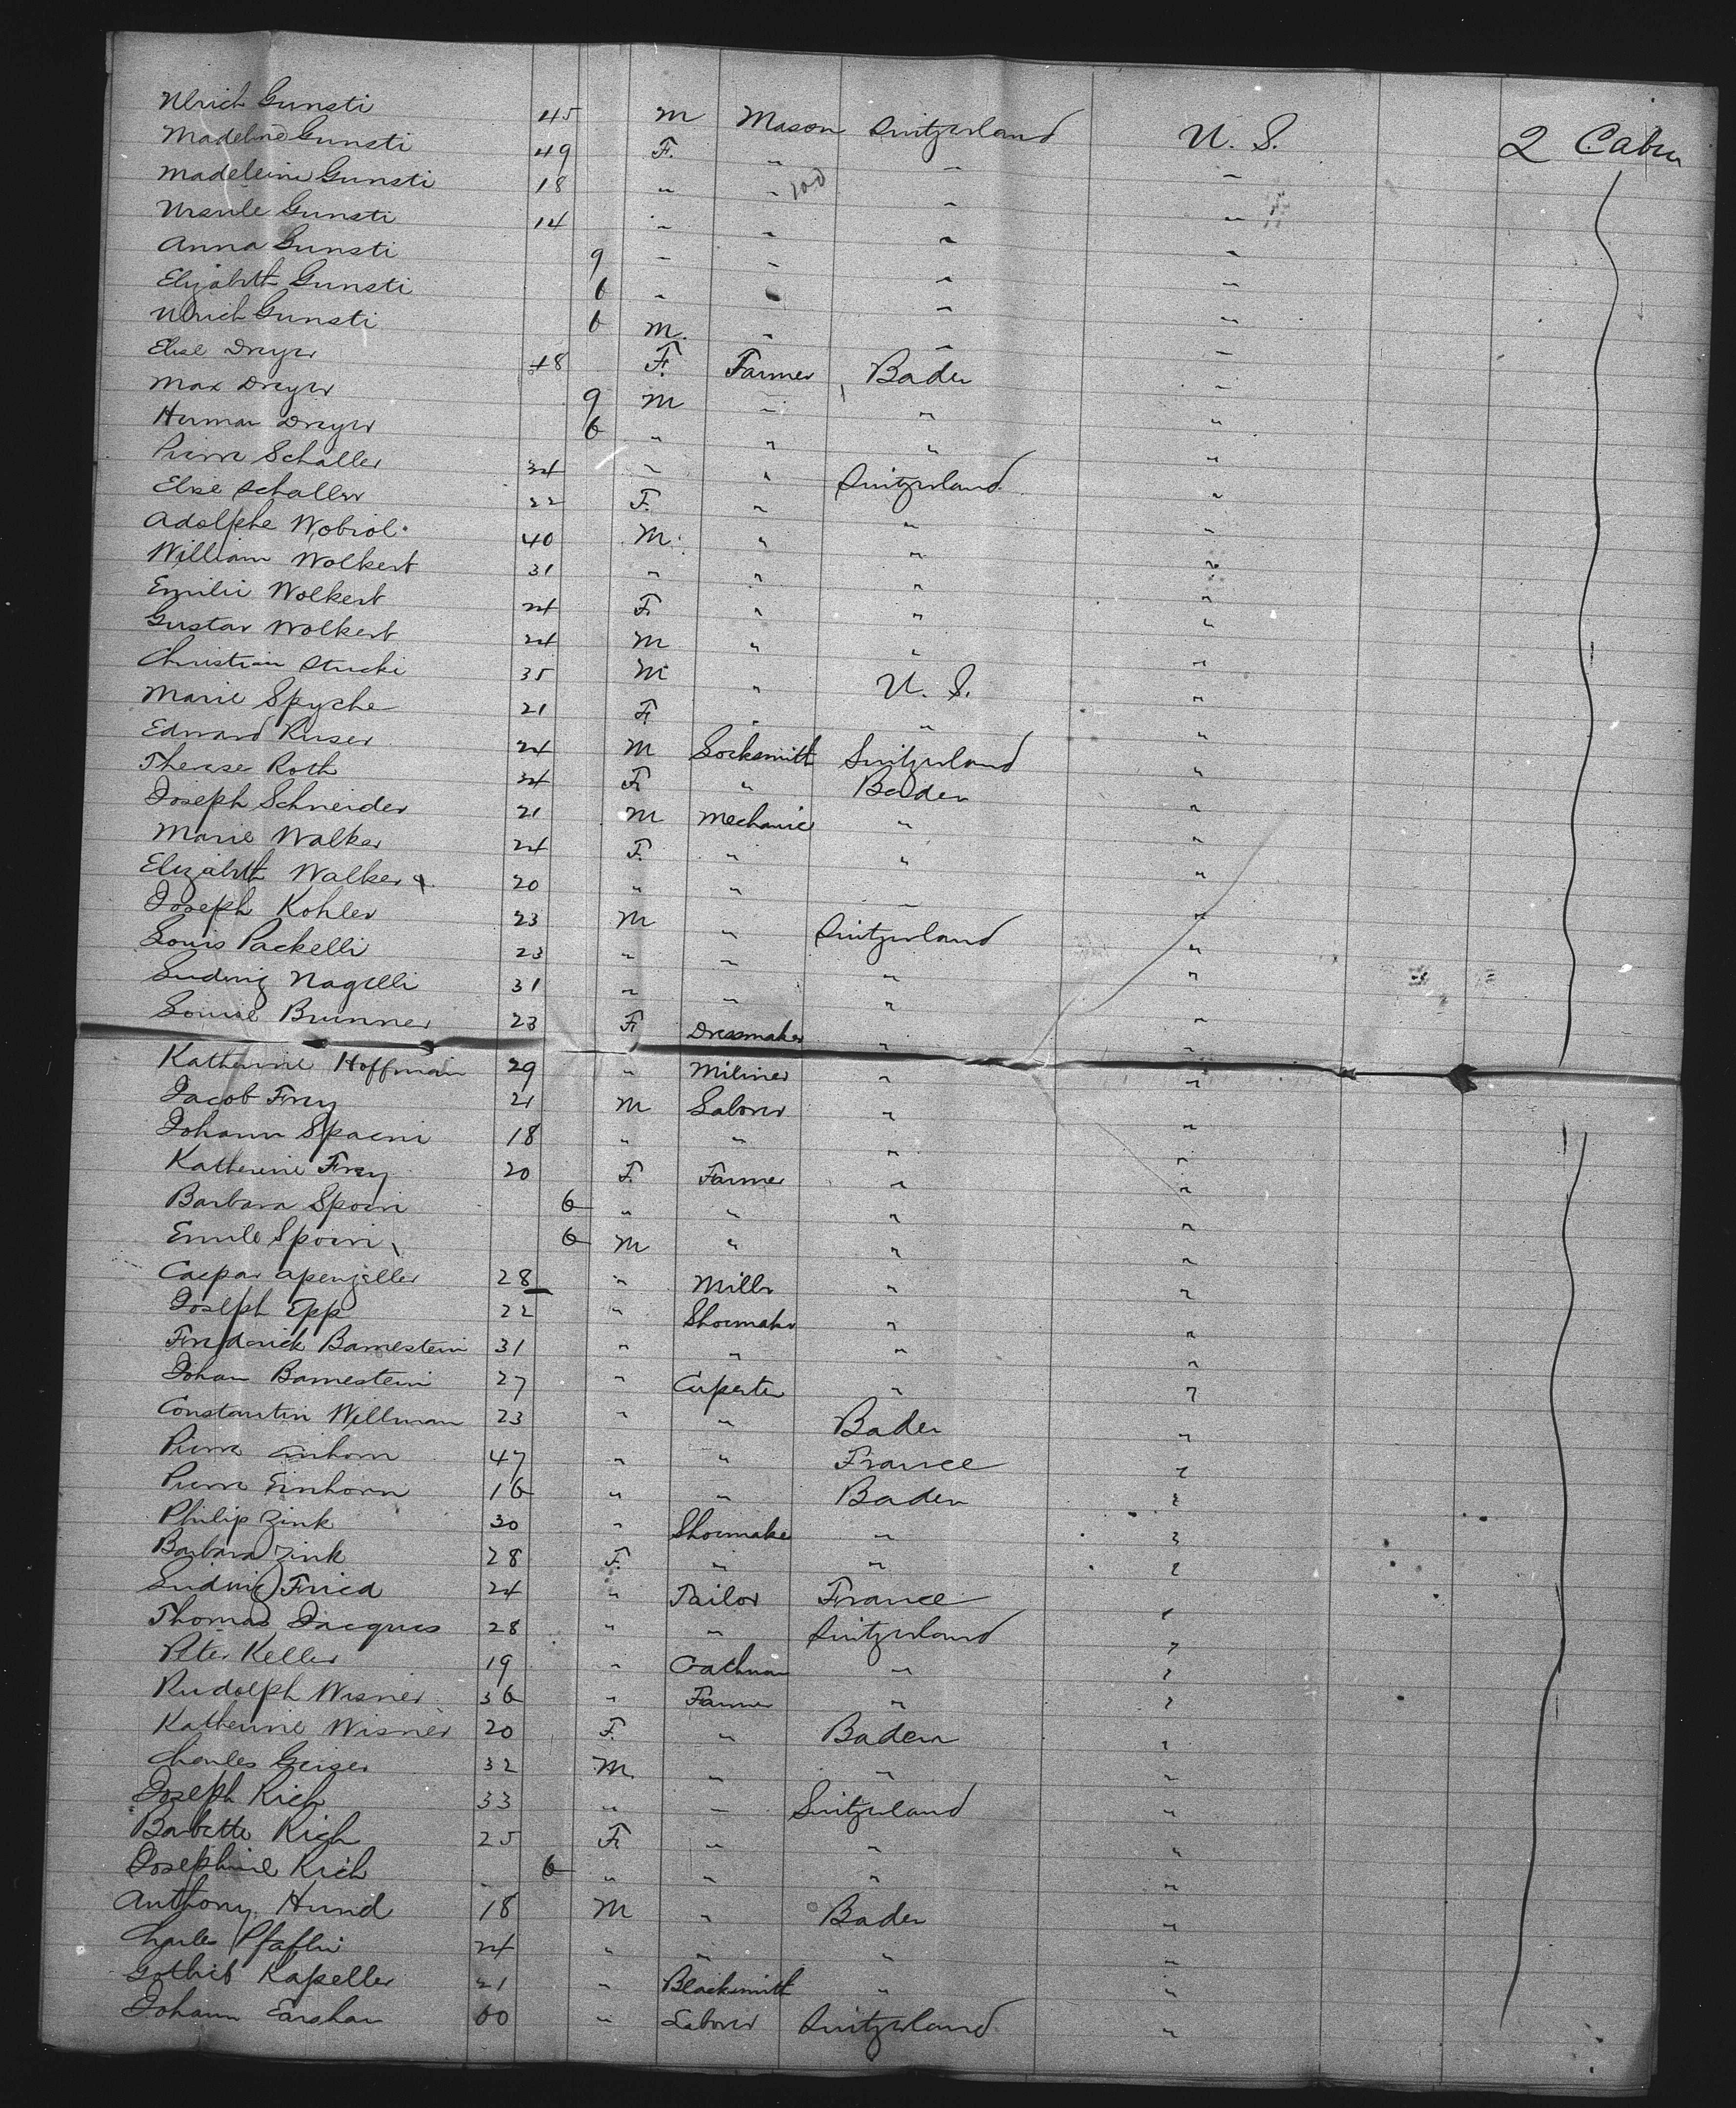 Ulrich Gunsti 45 M Mason Switzerland U. S. 2 Cabin
Madeline Gunsti 49 F. " " "
Madeleine Gunsti 18 " " 100 " "
Ursule Gunsti 14 " " " "
Anna Gunsti 9 " " " "
Elizabeth Gunsti 6 " " " "
Ulrich Gunsti 6 M. " " "
Elise Dreyer 48 F. Farmer Baden "
Max Dreyer 9 M " " "
Herman Dreyer 6 " " " "
Pierre Schaller 34 " " Switzerland "
Elise Schaller 22 F. " " "
Adolphe Wobrol 40 M. " " "
William Wolkert 31 " " " "
Emilie Wolkert 24 F. " " "
Gustav Wolkert 24 M " " "
Christian Stucki 35 M " U. S. "
Marie Spyche 21 F. " " "
Edward Kuser 24 M Locksmith Switzerland "
Therese Roth 34 F. " Baden "
Joseph Schneider 21 M Mechanic " "
Marie Walker 24 F. " " "
Elizabeth Walker 20 " " " "
Joseph Kohler 23 M " Switzerland "
Louis Packelli 23 " " " "
Ludwig Nagelli 31 " " " "
Louise Brunner 23 F. Dressmaker " "
Katherine Hoffman 29 " Miliner " "
Jacob Frey 21 M Laborer " "
Johann Spoeni 18 " " " "
Katherine Frey 20 F. Farmer " "
Barbara Spoeri 6 " " " "
Emile Spoeri 6 M " " "
Caspar Apenzeller 28 " Miller " "
Joseph Epp 22 " Shoemaker " "
Frederick Barnestein 31 " " " "
Johan Barnestein 27 " Carpenter " "
Constantin Wellman 23 " " Baden "
Pierre Einhorn 47 " " France "
Pierre Einhorn 16 " " Baden "
Philip Zink 30 " Shoemaker " "
Barbara Zink 28 F. " " "
Ludwig Fried 24 " Tailor France "
Thomas Jacques 28 " " Switzerland "
Peter Keller 19 " " "
Rudolph Wisner 36 " Farmer " "
Katherine Wisner 20 F. " Baden "
Charles Geiser 32 M " " "
Joseph Rich 33 " " Switzerland "
Barbette Rich 25 F. " " "
Josephine Rich 6 " " " "
Anthony Hund 18 M " Baden "
Charles Pfaflin 24 " " " "
Gothieb Kapeller 21 " Blacksmith " "
Johann Earshan 60 " Laborer Switzerland "